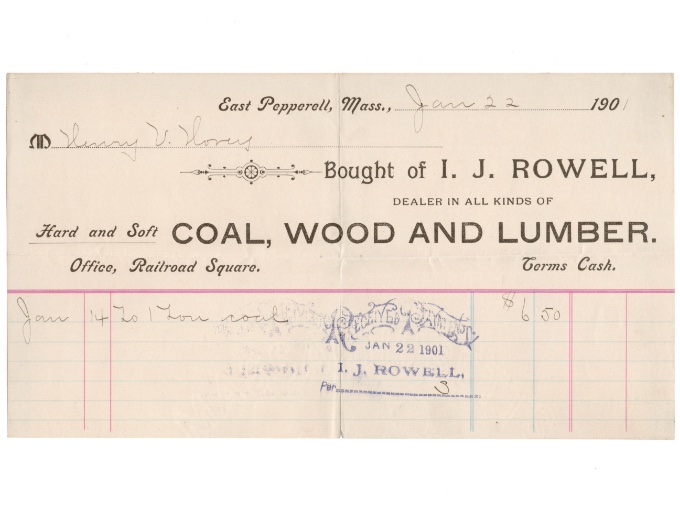 East Pepperell, Mass., Jan 22 1901
M Henry V. Hovey
Bought of I. J. ROWELL,
DEALER IN ALL KINDS OF
Hard and Soft COAL, WOOD AND LUMBER.
Office, Railroad Square. Terms Cash.
Jan 14 To 1 Ton coal $6 50
RECEIVED PAYMENT
JAN 22 1901
I. J. ROWELL,
Per